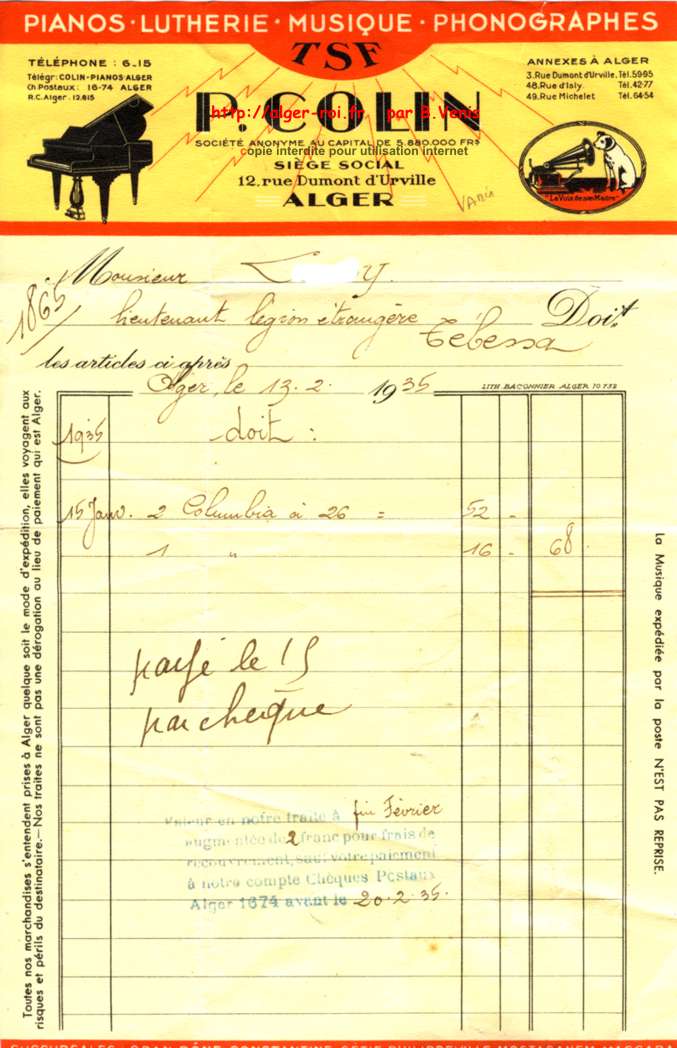 PIANOS · LUTHERIE · MUSIQUE · PHONOGRAPHES
TSF
TÉLÉPHONE : 6-15
Télégr: COLIN-PIANOS ALGER
Ch. Postaux : 16-74 ALGER
R.C. Alger . 12.815
ANNEXES À ALGER
3. Rue Dumont d'Urville, Tél. 59-95
48. Rue d'Isly. Tél. 42-77
49. Rue Michelet Tél. 64-54
P. COLIN
http://alger-roi.fr par B.Venis
SOCIÉTÉ ANONYME AU CAPITAL DE 5.880.000 FRS
copie interdite pour utilisation internet
SIÈGE SOCIAL
12, rue Dumont d'Urville
ALGER
"La Voix de son Maître"
VARIÉ
Monsieur L y.
1865
lieutenant légion étrangère Doit
Tébessa
les articles ci après
Alger, le 13.2. 1935
LITH. BACONNIER ALGER 70 732
1935 doit :
15 Janv. 2 Columbia à 26 = 52 -
1 " 16 - 68
payé le 15
par chèque
Valeur en notre traite à fin Février
augmentée de 2 franc pour frais de
recouvrement, sauf votre paiement
à notre compte Chèques Postaux
Alger 1674 avant le 20.2.35.
Toutes nos marchandises s'entendent prises à Alger quelque soit le mode d'expédition, elles voyagent aux
risques et périls du destinataire.—Nos traites ne sont pas une dérogation au lieu de paiement qui est Alger.
La Musique expédiée par la poste N'EST PAS REPRISE.
SUCCURSALES : ORAN BÔNE CONSTANTINE SÉTIF PHILIPPEVILLE MOSTAGANEM MASCARA